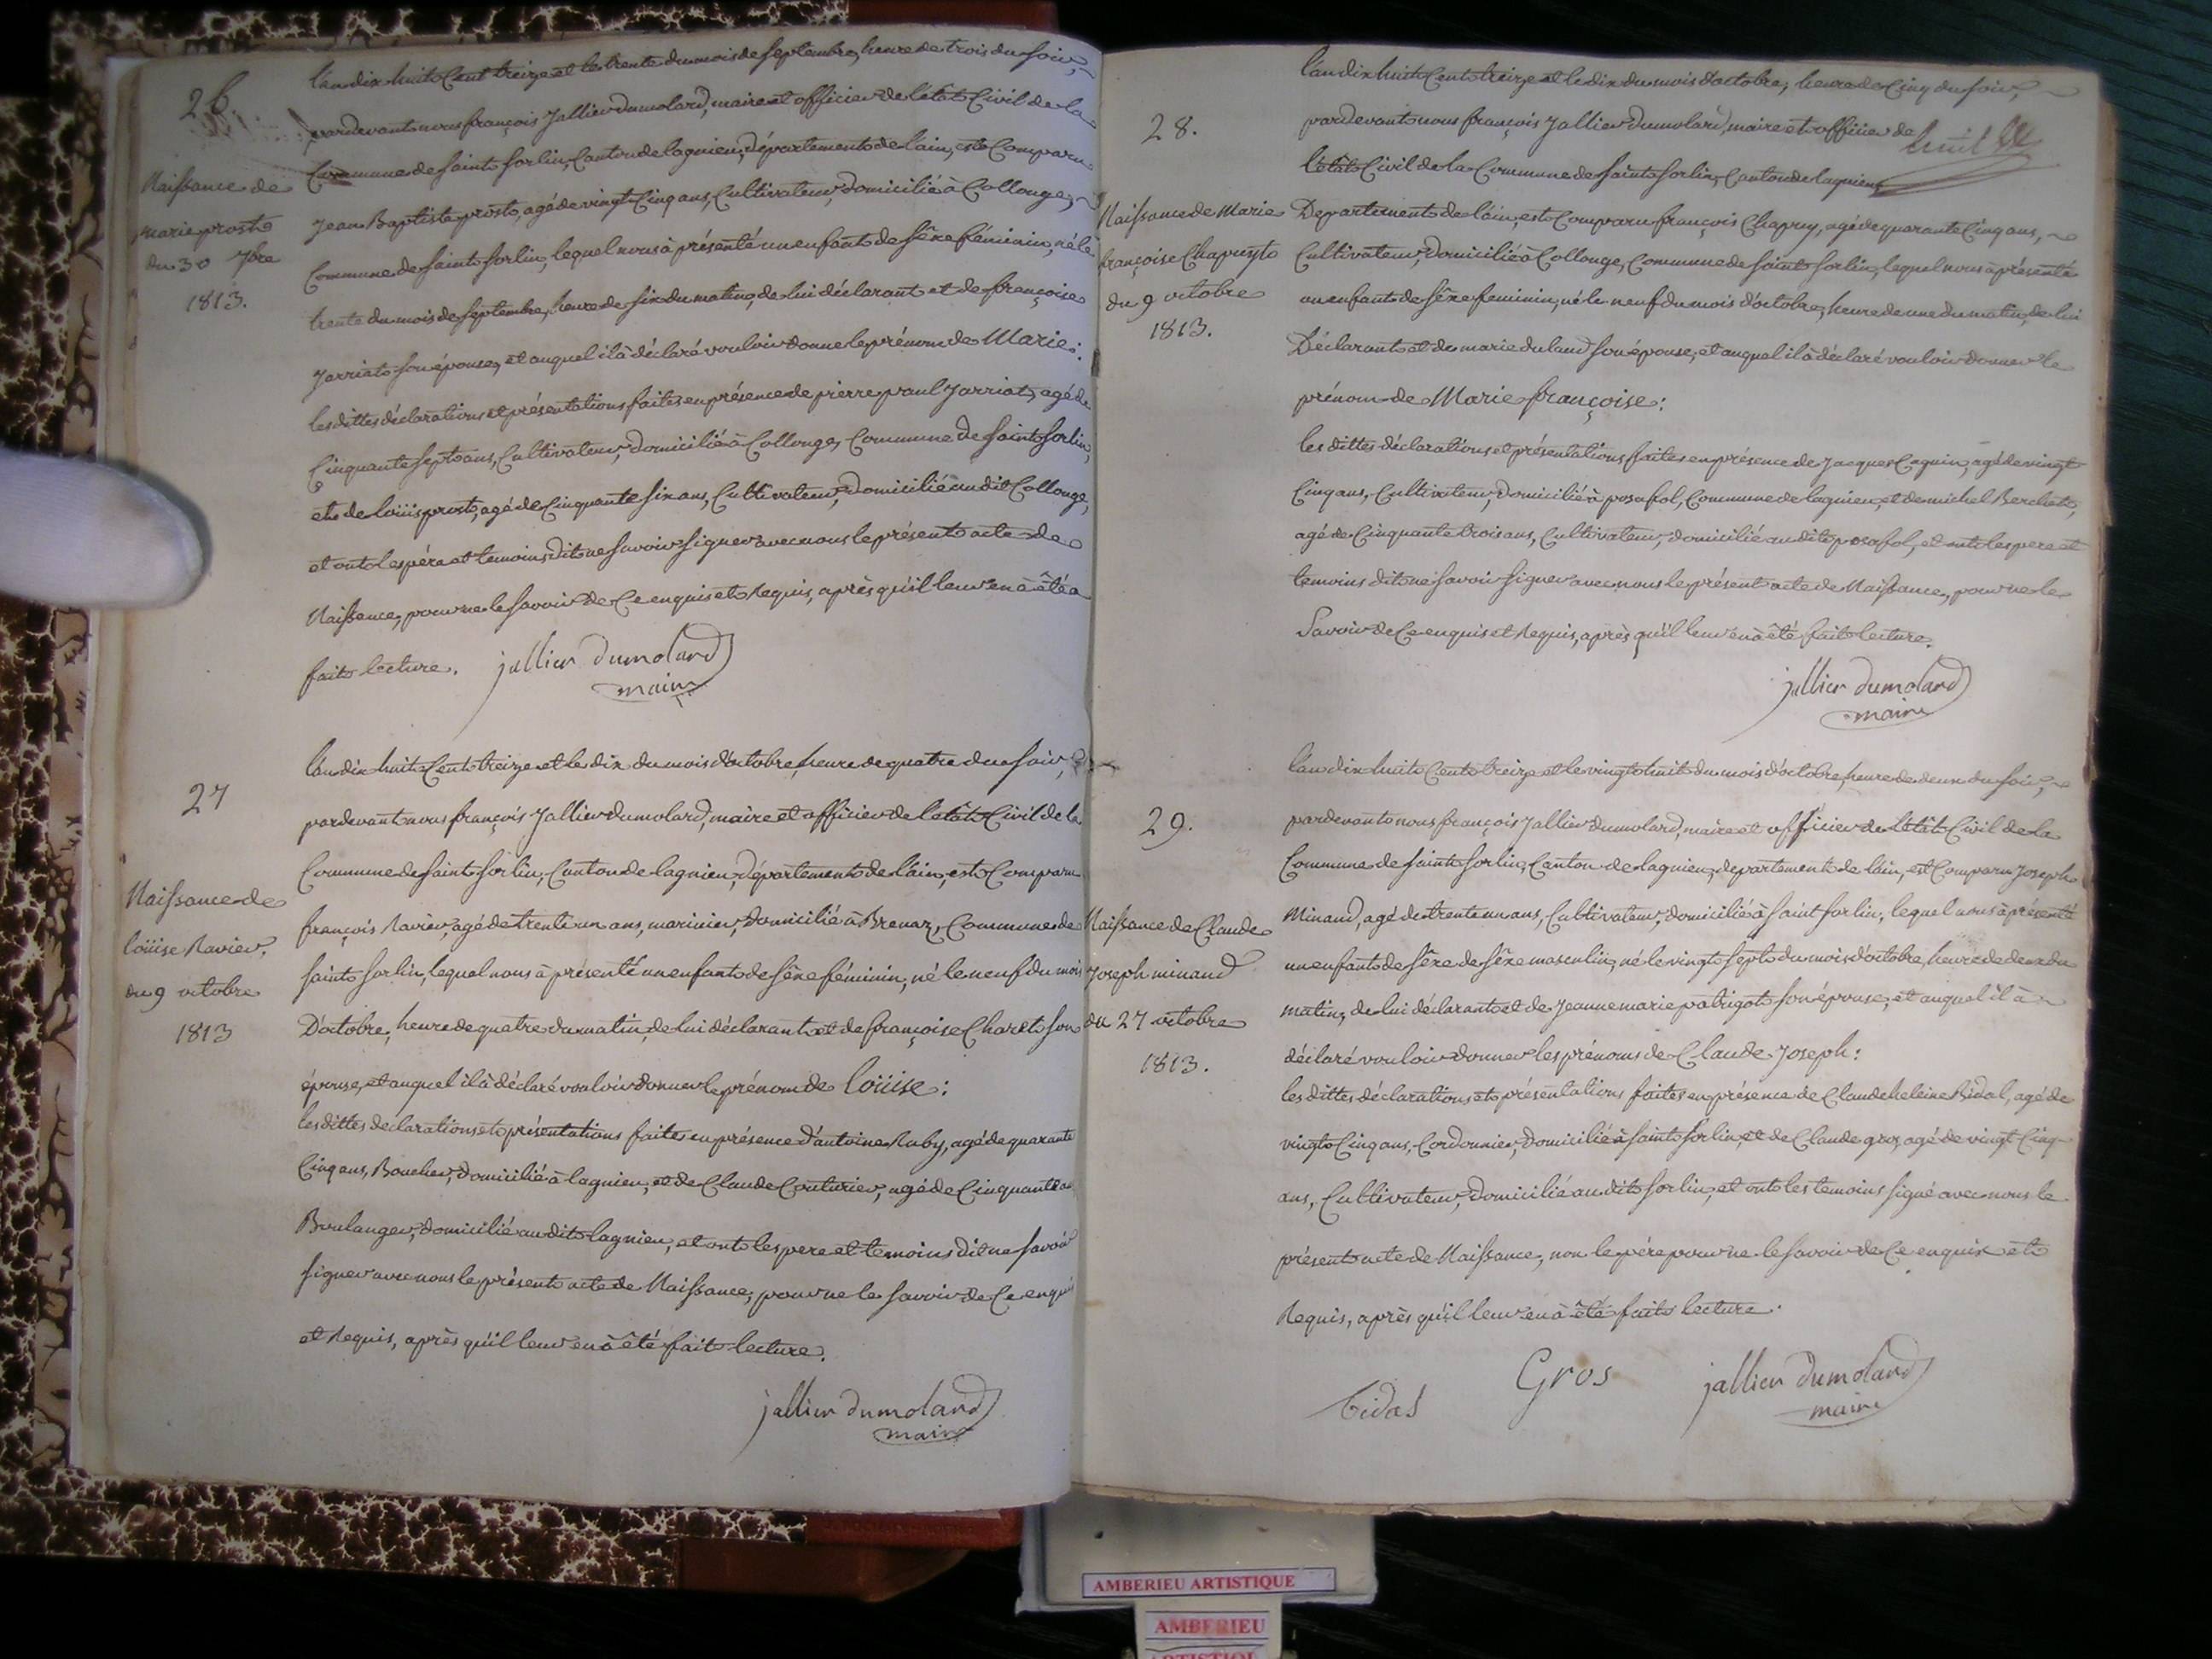 26.
Naissance de
marie prost
du 30 7bre
1813.
l'an dix huit Cent treize et le trente du mois de septembre, heure de trois du soir,
pardevant nous françois Jallier dumolard, maire et officier de l'état Civil de la
Commune de saint sorlin, Canton de lagnieu, département de lain, est Comparu
Jean Baptiste prost, agé de vingt Cinq ans, Cultivateur, domicilié à Collonge,
Commune de saint sorlin, lequel nous à présenté un enfant de sêxe féminin, né le
trente du mois de septembre, heure de six du matin, de lui déclarant et de françoise
Jarriat son épouse, et auquel il à déclaré vouloir donne le prénom de Marie:
les dittes déclarations et présentations faites en présence de pierre paul Jarriat, agé de
Cinquante sept ans, Cultivateur, domicilié à Collonge, Commune de saint sorlin,
et de loüis prost, agé de Cinquante six ans, Cultivateur, domicilié au dit Collonge,
et ont les pére et temoins dit ne savoir signer avec nous le présent acte de
Naissence, pour ne le savoir de Ce enquis et Requis, après qu'il leur en à été
fait lecture. jallier dumolard
maire
27
Naissance de
loüise Ravier,
du 9 octobre
1813
l'an dix huit Cent treize et le dix du mois d'octobre, heure de quatre du soir,
pardevant nous françois Jallier dumolard, maire et officier de l'état Civil de la
Commune de saint sorlin, Canton de lagnieu, département de l'ain, est Comparu
françois Ravier, agé de trente un ans, marinier, domicilié à Brenaz, Commune de
saint sorlin, lequel nous à présenté un enfant de sêxe féminin, né le neuf du mois
D'octobre, heure de quatre du matin, de lui déclarant et de françoise Charet son
épouse, et auquel il à déclaré vouloir donner le prénom de loüise:
les dittes declarations et présentations faites en présence d'antoine Ruby, agé de quarante
Cinq ans, Boucher, domicilié à lagnieu, et de Claude Couturier, agé de Cinquante ans
Boulanger, domicilié au dit lagnieu, et ont les pere et temoins dit ne savoir
signer avec nous le présent acte de Naissance, pour ne le savoir de Ce enquis
et Requis, après qu'il leur en à été fait lecture.
jallier dumolard
maire
huit
28.
Naissance de Marie
françoise Chapuy
du 9 octobre
1813.
l'an dix huit Cent treize et le dix du mois d'octobre, heure de Cinq du soir,
pardevant nous françois Jallier dumolard, maire et officier de
l'état Civil de la Commune de saint sorlin, Canton de lagnieu,
Departement de l'ain, est Comparu françois Chapuy, agé de quarante Cinq ans,
Cultivateur, domicilié à Collonge, Commune de saint sorlin, lequel nous à présenté
un enfant de sêxe feminin, né le neuf du mois d'octobre, heure de une du matin, de lui
Déclarant et de marie duland son épouse, et auquel il à déclaré vouloir donner le
prénom de Marie françoise:
les dittes déclarations et présentations faites en présence de Jacques Caguin, agé de vingt
Cinq ans, Cultivateur, domicilié à posafol, Commune de lagnieu, et de michel Berchet,
agé de Cinquante trois ans, Cultivateur, domicilié au dit posafol, et ont les pere et
temoins dit ne savoir signer avec nous le présent acte de Naissance, pour ne le
Savoir de Ce enquis et Requis, après qu'il leur en à été fait lecture.
jallier dumolard
maire
29.
Naissance de Claude
Joseph minand
du 27 octobre
1813.
l'an dix huit Cent treize et le vingt huit du mois d'octobre, heure de deux du soir,
pardevant nous françois Jallier dumolard, maire et officier de l'état Civil de la
Commune de saint sorlin, Canton de lagnieu, departement de l'ain, est Comparu Joseph
Minand, agé de trente un ans, Cultivateur, domicilié à saint sorlin, lequel nous à présenté
un enfant de sêxe de sêxe masculin, né le vingt sept du mois d'octobre, heure de deux du
matin, de lui déclarant et de Jeanne marie patrigot son épouse, et auquel il à
déclaré vouloir donner les prénoms de Claude Joseph:
les dittes déclarations et présentations faites en présence de Claude heleine Bidal, agé de
vingt Cinq ans, Cordonnier, domicilié à saint sorlin, et de Claude gros, agé de vingt Cinq
ans, Cultivateur, domicilié au dit sorlin, et ont les temoins signé avec nous le
présent acte de Naissance, non le pére pour ne le savoir de Ce enquis et
Requis, après qu'il leur en à été fait lecture.
Bidal Gros jallier dumolard
maire
AMBERIEU ARTISTIQUE
AMBERIEU
ARTISTIQUE